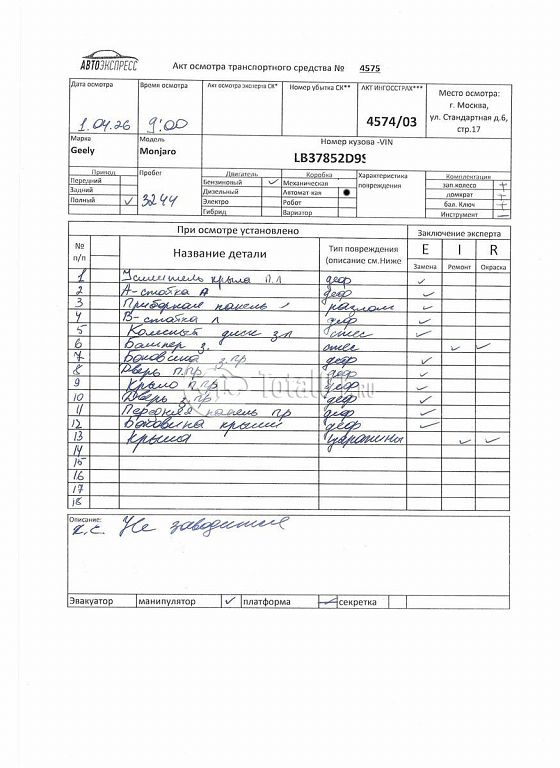 АВТОЭКСПРЕСС
Акт осмотра транспортного средства № 4575
Дата осмотра
1.04.26
Время осмотра
9:00
Акт осмотра эксперта СК*
Номер убытка СК**
АКТ ИНГОССТРАХ***
4574/03
Место осмотра:
г. Москва,
ул. Стандартная д.6,
стр.17
Марка
Geely
Модель
Monjaro
Номер кузова -VIN
LB37852D9S
Привод
Передний
Задний
Полный ✓
Пробег
3244
Двигатель
Бензиновый ✓
Дизельный
Электро
Гибрид
Коробка
Механическая
Автомат кая ●
Робот
Вариатор
Характеристика
повреждения
Комплектация
зап.колесо +
домкрат +
бал. Ключ +
Инструмент —
При осмотре установлено
Заключение эксперта
№ п/п
Название детали
Тип повреждения
(описание см.Ниже
E I R
Замена Ремонт Окраска
1 Усилитель крыла п.л деф ✓
2 А-стойка л деф ✓
3 Приборная панель разлом ✓
4 В-стойка л деф ✓
5 Колесный диск з.л стес ✓
6 Бампер з. стес ✓ ✓
7 Боковина з.пр деф ✓
8 Дверь п.пр деф ✓
9 Крыло п.пр деф ✓
10 Дверь з.пр деф ✓
11 Передняя панель пр деф ✓
12 Боковина крыши деф ✓
13 Крыша царапины ✓ ✓
14
15
16
17
18
Total .ru
Описание:
Не заводится
Эвакуатор манипулятор ✓ платформа секретка